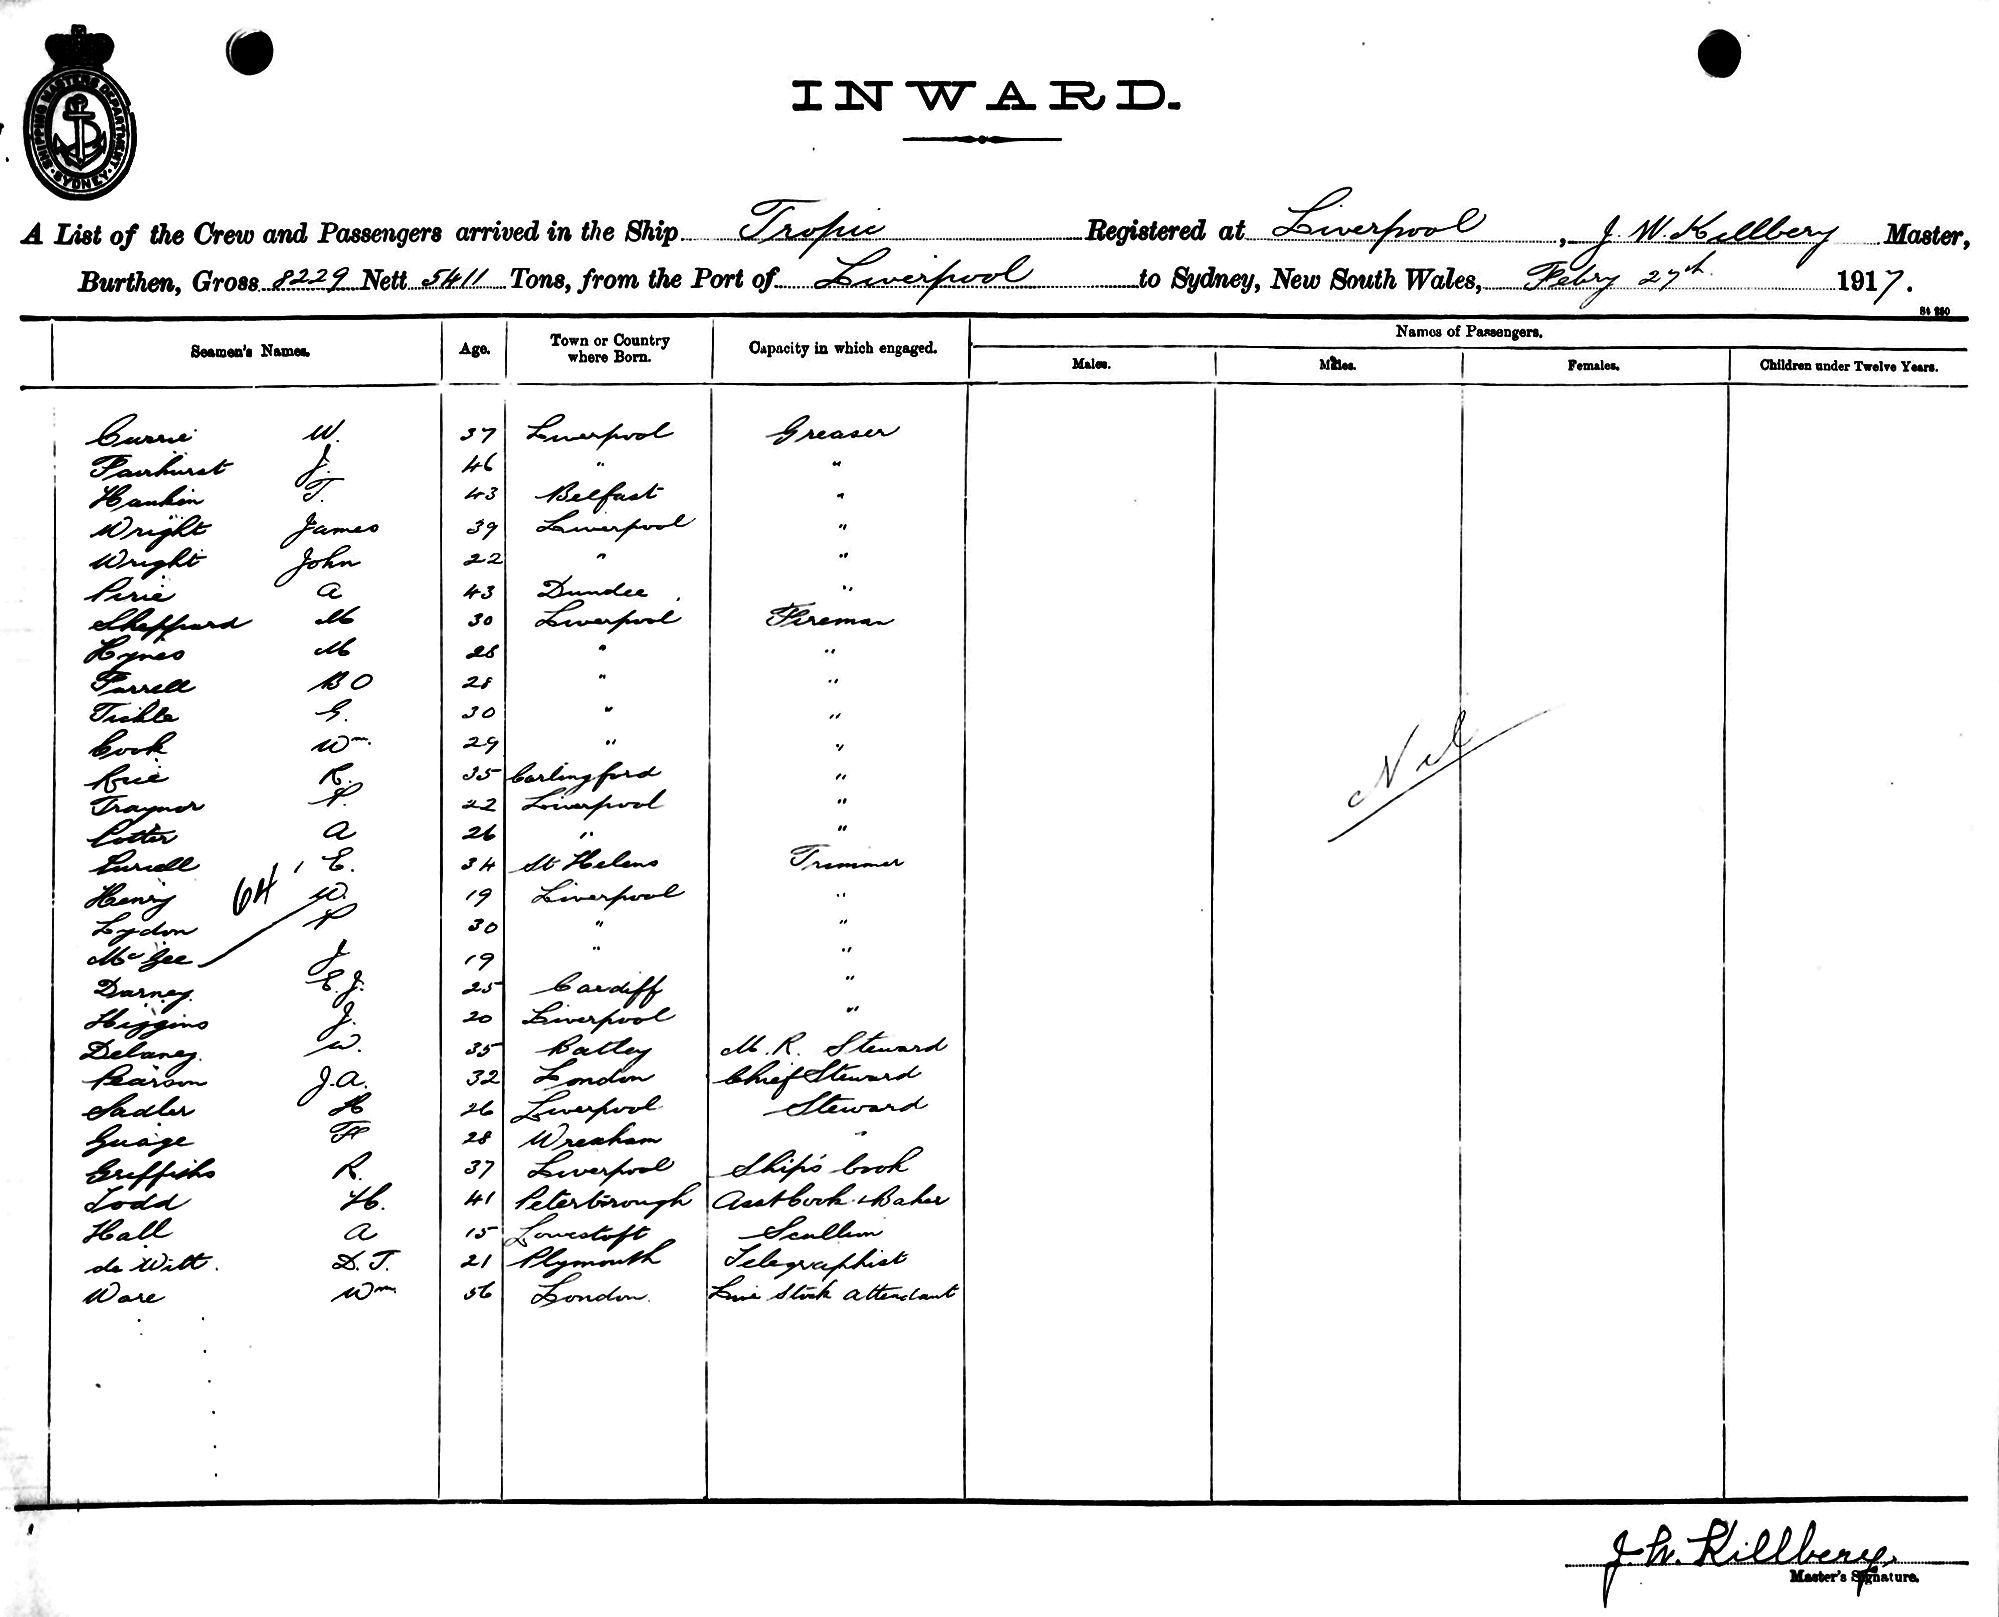 SHIPPING MASTERS DEPARTMENT
SYDNEY
INWARD.
A List of the Crew and Passengers arrived in the Ship Tropic Registered at Liverpool, J. W. Killbery Master,
Burthen, Gross 8229 Nett 5411 Tons, from the Port of Liverpool to Sydney, New South Wales, Febry 27th 1917.
Seamen's Names. Age. Town or Country where Born. Capacity in which engaged. Names of Passengers.
Males. Males. Females. Children under Twelve Years.
Currie W. 37 Liverpool Greaser
Fairhurst J. 46 " "
Hankin T. 43 Belfast "
Wright James 39 Liverpool "
Wright John 22 " "
Pirie A 43 Dundee "
Sheppard M 30 Liverpool Fireman
Hynes M 28 " "
Farrell B O 28 " "
Tickle G. 30 " "
Cook Wm. 29 " "
Rice R. 35 Carlingford "
Traynor P. 22 Liverpool "
Potter A 26 " "
E. 34 St Helens Trimmer
Henry W. 19 Liverpool "
64
Lydon P 30 " "
McGee J 19 " "
Darney E. J. 25 Cardiff "
Higgins J. 20 Liverpool "
Delaney W. 35 Batley M. R. Steward
Pearson J. A. 32 London Chief Steward
Sadler H 26 Liverpool Steward
Guage F 28 Wrexham "
Griffiths R. 37 Liverpool Ship's Cook
Todd H. 41 Peterborough Asst Cook & Baker
Hall A 15 Lowestoft Scullion
de Witt. D. T. 21 Plymouth Telegraphist
Ware Wm 56 London. Live Stock Attendant
Nil
J. W. Killbery.
Master's Signature.